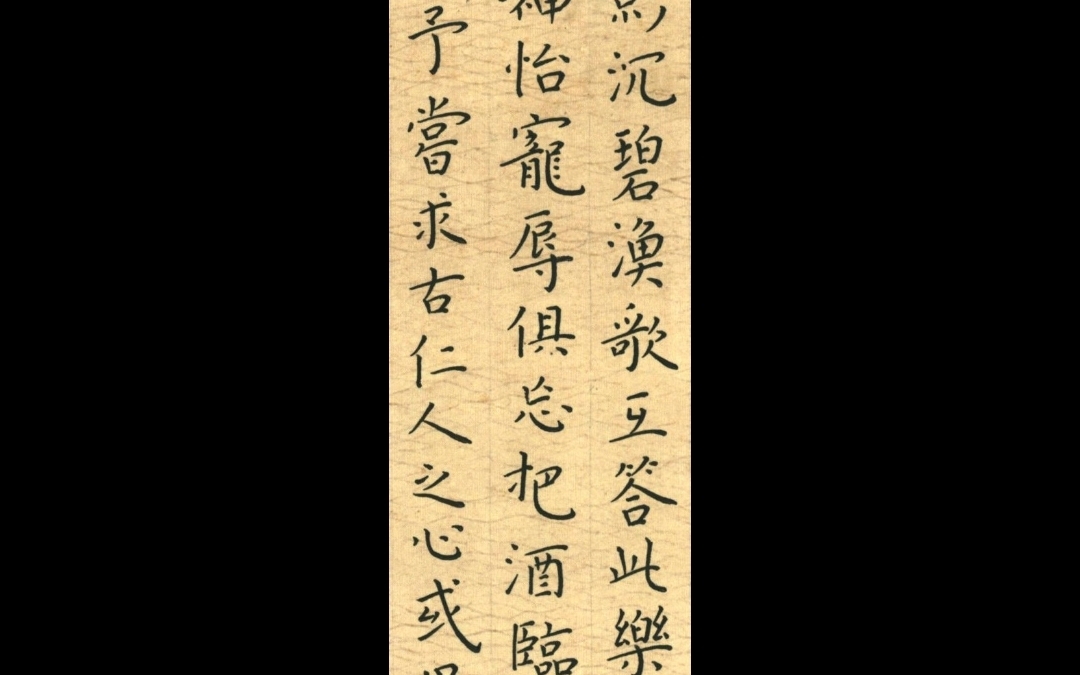 沉碧漁歌互答此樂
神怡寵辱俱忘把酒臨
予嘗求古仁人之心或